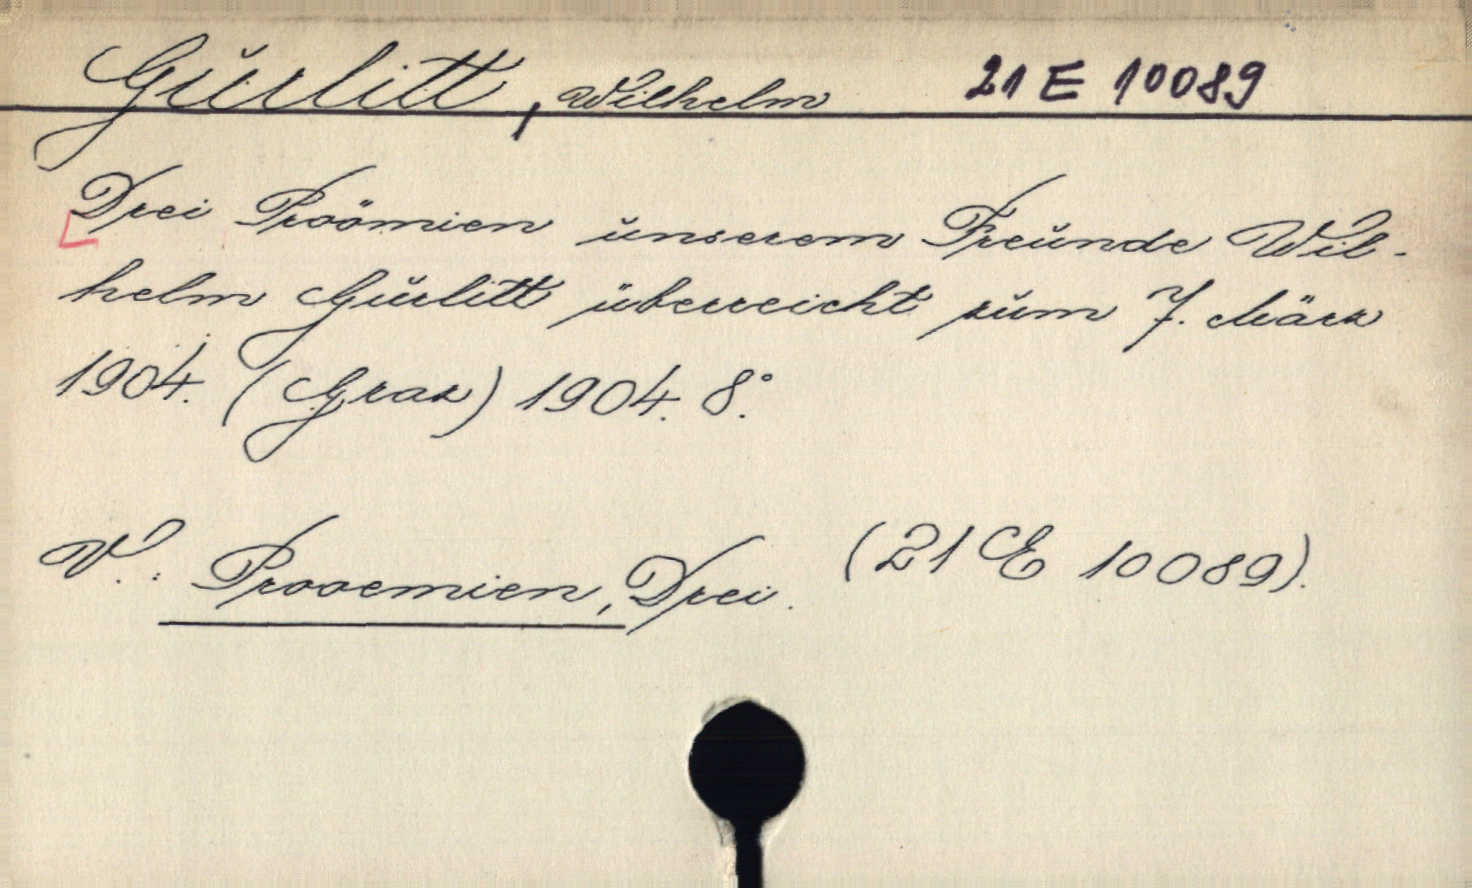 Gurlitt, Wilhelm 21 E 10089
Drei Proömien unserem Freunde Wil-
helm Gurlitt überreicht zum 7. März
1904. (Graz) 1904. 8°.
V.: Prooemien, Drei. (21 E 10089).